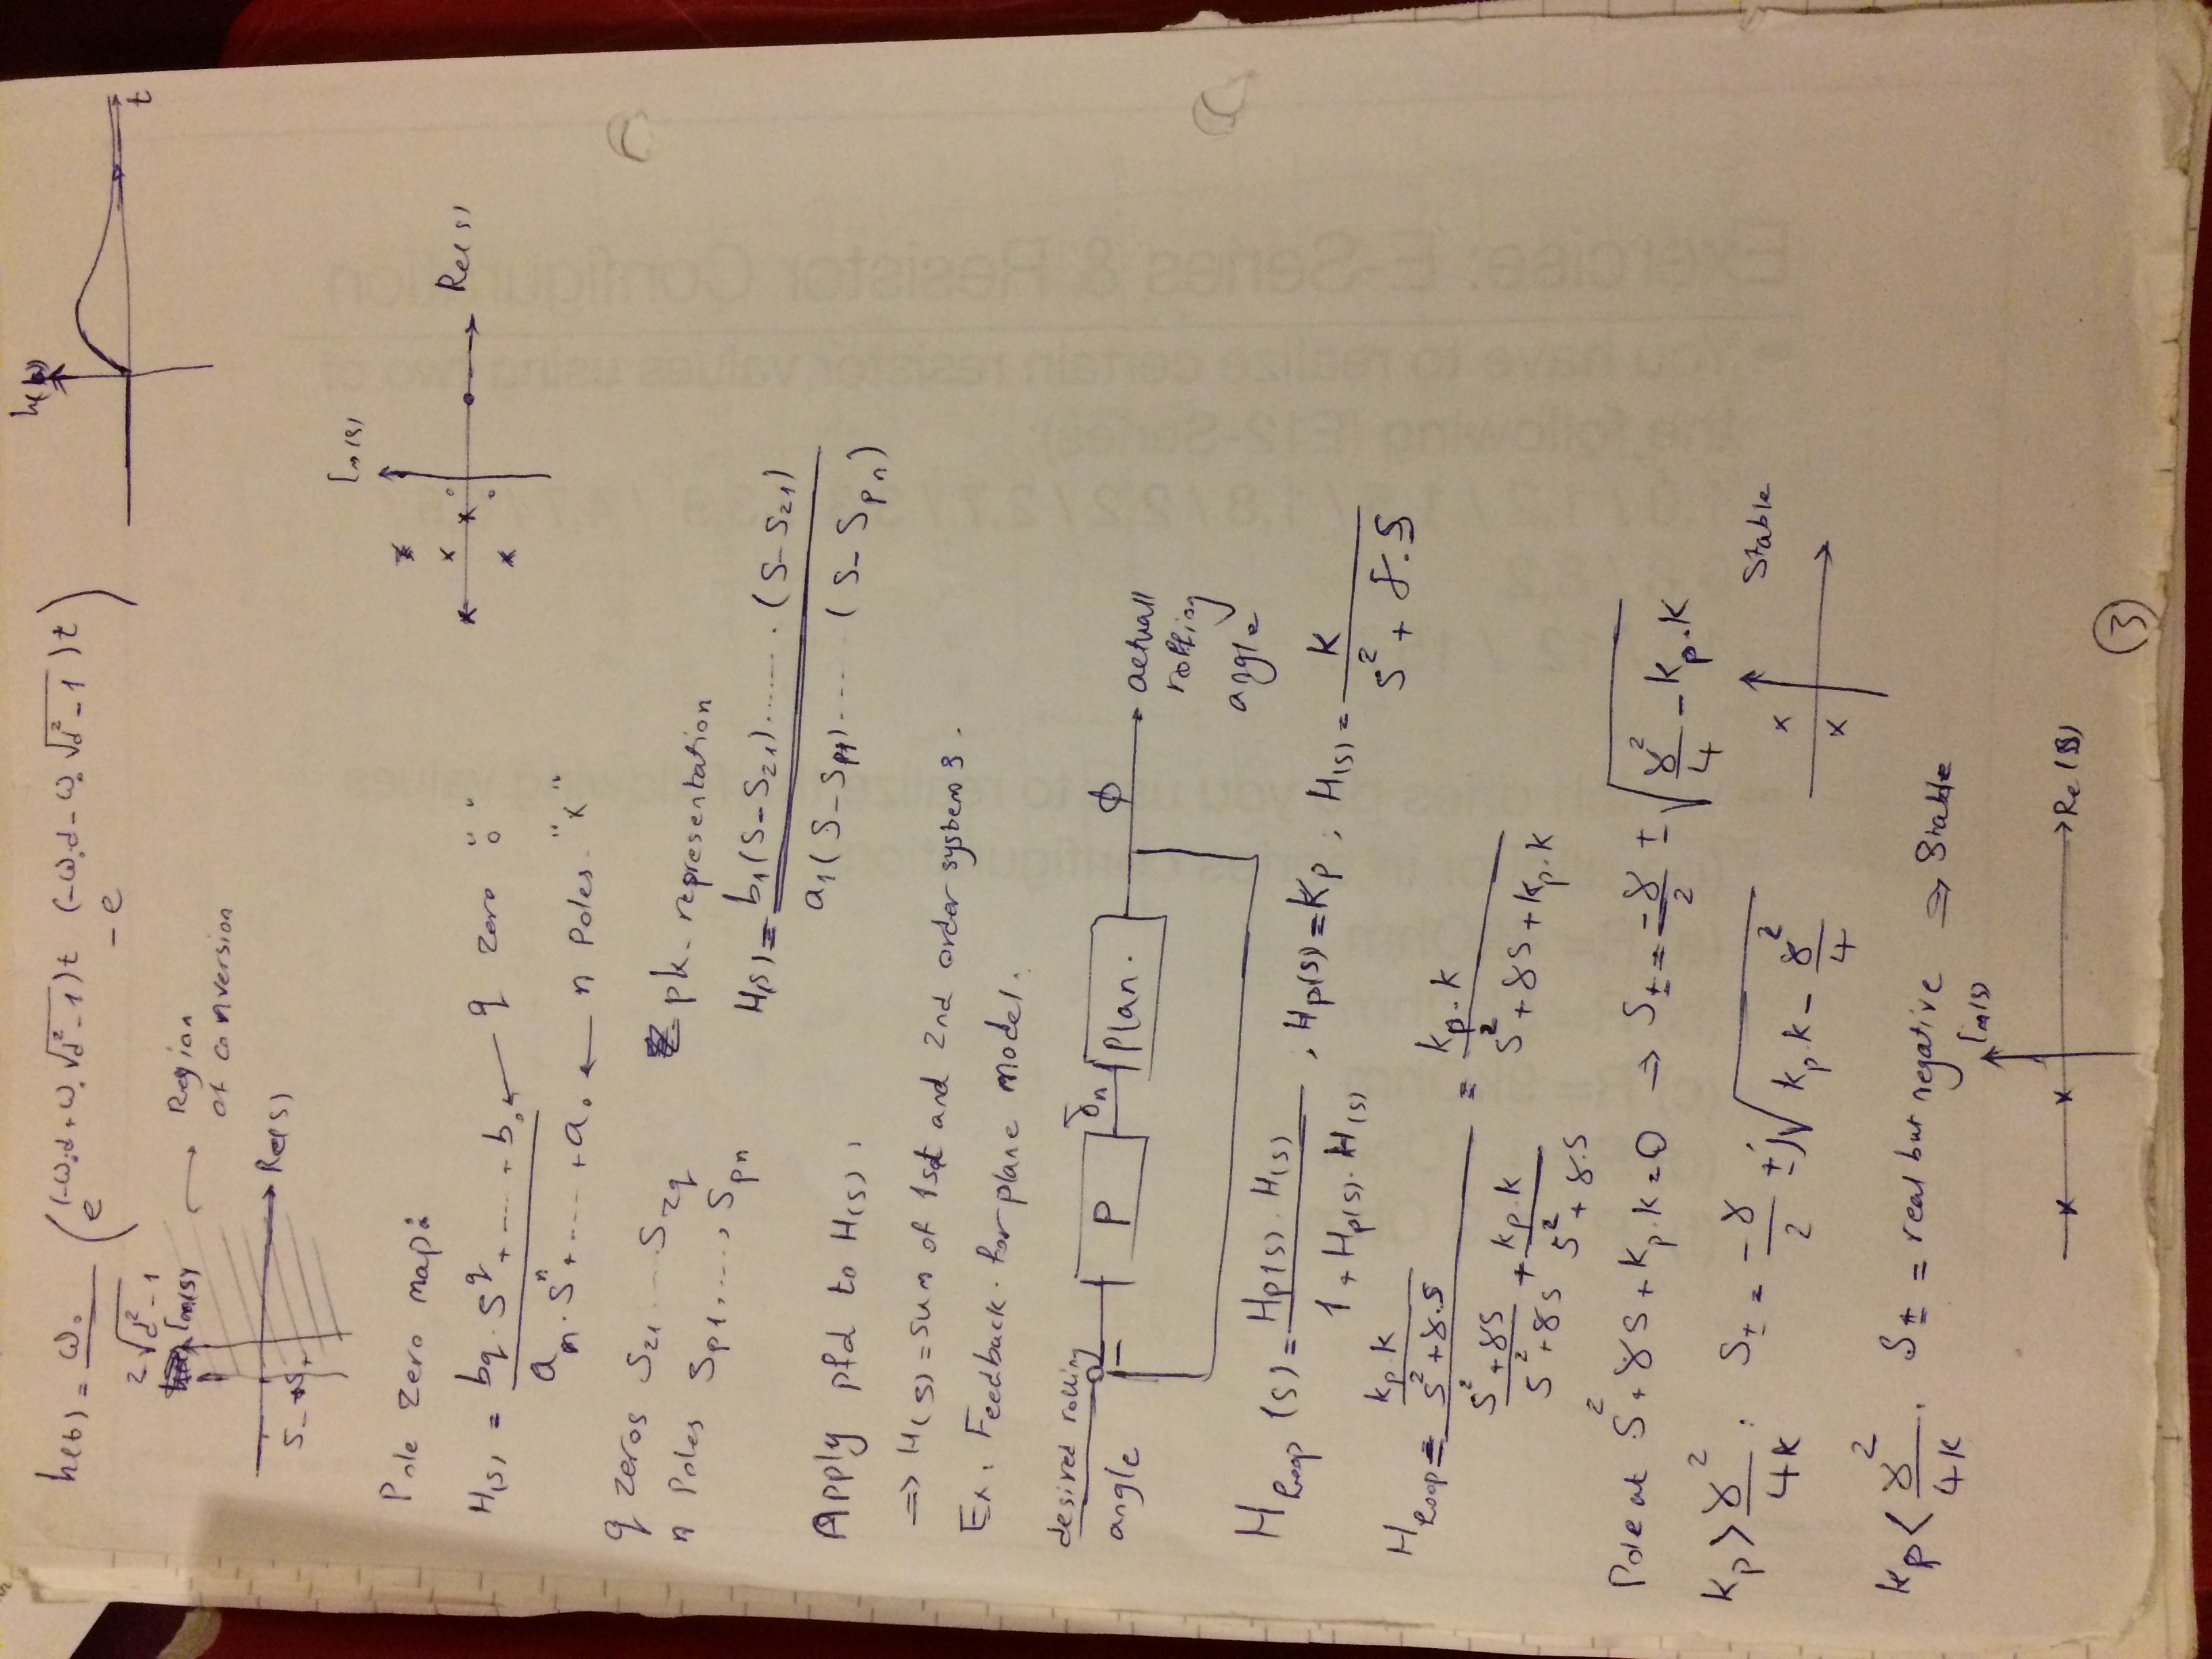 h(t) = ω₀ / 2√(d²-1) ( e^(-ω₀d + ω₀√(d²-1))t - e^(-ω₀d - ω₀√(d²-1))t )
h(t)
t
Im(s)
Region
of conversion
Re(s)
S₋ S₊
Im(s)
Re(s)
Pole Zero map:
H(s) = bq·S^q + ---- + b₀ ← q zero "o"
an·S^n + ---- + a₀ ← n Poles "x"
q zeros Sz1 ---- Szq
n Poles Sp1, ----, Spn
Z pk- representation
H(s) = b1(S-Sz1) ------- (S-Sz1)
a1(S-Sp1) ---- (S-Spn)
Apply pfd to H(s),
⇒ H(s) = sum of 1st and 2nd order systems.
Ex. Feedback for plane model.
desired rolling
angle
-
P
δn
Plan.
ϕ
actuall
rolling
angle
Hloop(s) = Hp(s)·H(s) / 1 + Hp(s)·H(s) , Hp(s) = Kp , H(s) = K / S² + γ.S
Hloop = (Kp.K / S² + γ.S) / (S² + γS / S² + γS + Kp.K / S² + γ.S) = Kp.K / S² + γS + Kp.K
Pole at S² + γS + Kp.K = 0 ⇒ S± = -γ/2 ± √(γ²/4 - Kp.K)
Kp > γ²/4K : S± = -γ/2 ± j√(Kp.K - γ²/4)
Stable
Kp < γ²/4K . S± = real but negative ⇒ Stable
Im(s)
Re(S)
3